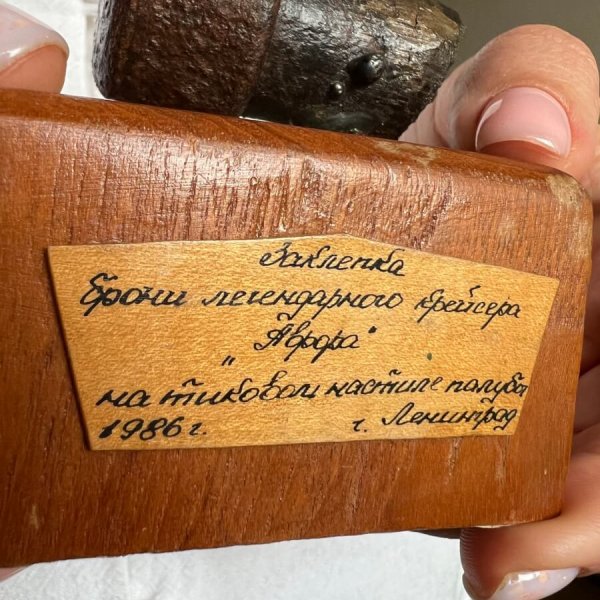 Заклепка
брони легендарного крейсера
"Аврора"
на тиковом настиле палубы
1986 г. г. Ленинград